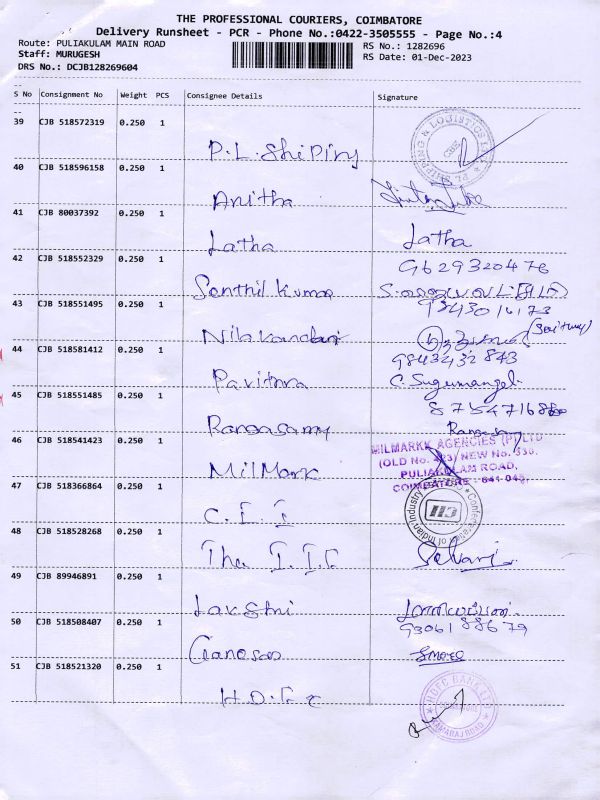 THE PROFESSIONAL COURIERS, COIMBATORE
Delivery Runsheet - PCR - Phone No.:0422-3505555 - Page No.:4
Route: PULIAKULAM MAIN ROAD
RS No.: 1282696
Staff: MURUGESH
RS Date: 01-Dec-2023
DRS No.: DCJB128269604
S No Consignment No Weight PCS Consignee Details Signature
39 CJB 518572319 0.250 1
P.L. Shiping
40 CJB 518596158 0.250 1
Anitha
41 CJB 80037392 0.250 1
Latha Latha
42 CJB 518552329 0.250 1
9629320476
Senthil Kumar
43 CJB 518551495 0.250 1
Nilakandan
44 CJB 518581412 0.250 1
9843432843
Pavithra C. Sugumangel
45 CJB 518551485 0.250 1
Rangasamy
46 CJB 518541423 0.250 1
MILMARKK AGENCIES (P) LTD
(OLD No. /NEW No. 530,
PULIAKULAM ROAD,
COIMBATORE - 641 045.
MilMark
47 CJB 518366864 0.250 1
Confederation of Indian Industry
CII
C.I.I
48 CJB 518528268 0.250 1
The I.I.C
49 CJB 89946891 0.250 1
Lakshmi
50 CJB 518508407 0.250 1
9306188679
Ganesan
51 CJB 518521320 0.250 1
H.D.F.C
HDFC BANK LTD
KAMARAJ ROAD